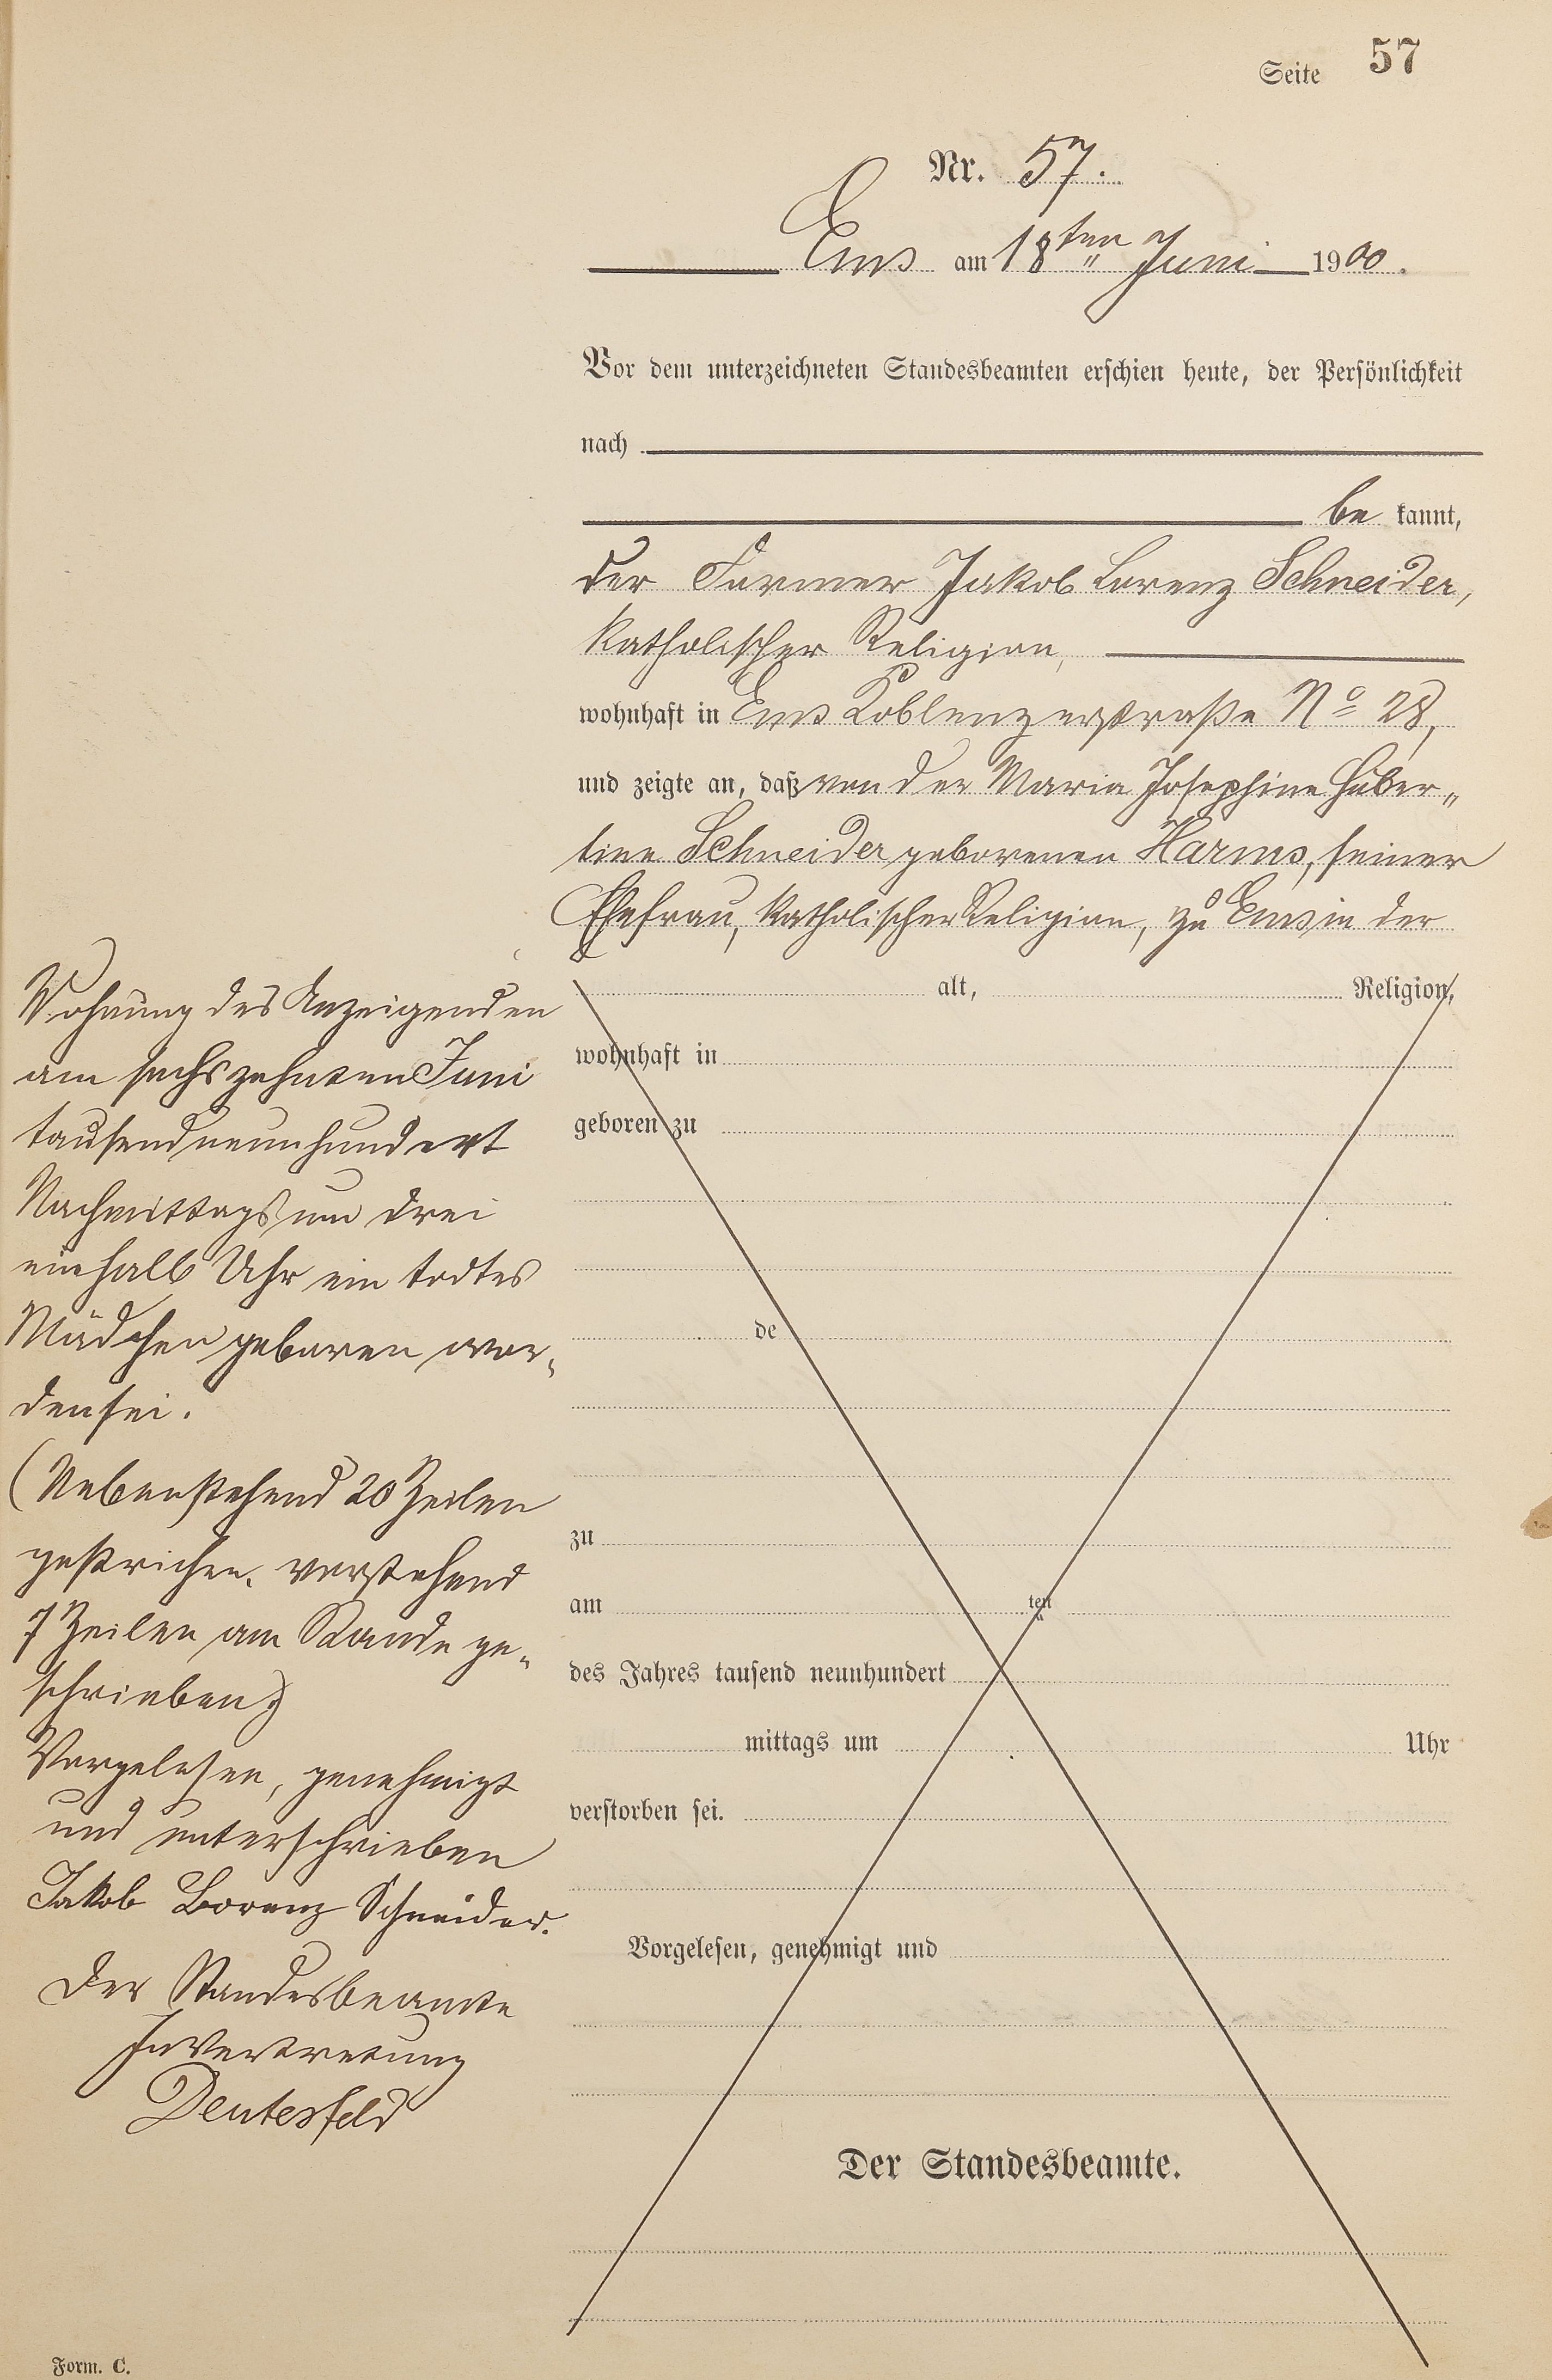 Seite 57
Nr. 57.
Ems am 18ten Juni 1900.
Vor dem unterzeichneten Standesbeamten erschien heute, der Persönlichkeit
nach
be kannt,
der Farmer Jakob Lorenz Schneider,
katholischer Religion,
wohnhaft in Ems Koblenzerstraße No 28,
und zeigte an, daß von der Maria Josephine Huber„
tine Schneider geborenen Harms, seiner
Ehefrau, katholischer Religion, zu Ems in der
alt, Religion,
wohnhaft in
geboren zu
de
zu
am ten
des Jahres tausend neunhundert
mittags um Uhr
verstorben sei.
Vorgelesen, genehmigt und
Der Standesbeamte.
Wohnung des Anzeigenden
am sechszehnten Juni
tausend neunhundert
Nachmittags um drei
einhalb Uhr ein todtes
Mädchen geboren wor„
den sei.
(Nebenstehend 20 Zeilen
gestrichen, vorstehend
7 Zeilen am Rande ge„
schrieben)
Vorgelesen, genehmigt
und unterschrieben
Jakob Lorenz Schneider.
Der Standesbeamte
In Vertretung
Deutesfeld
Form. C.